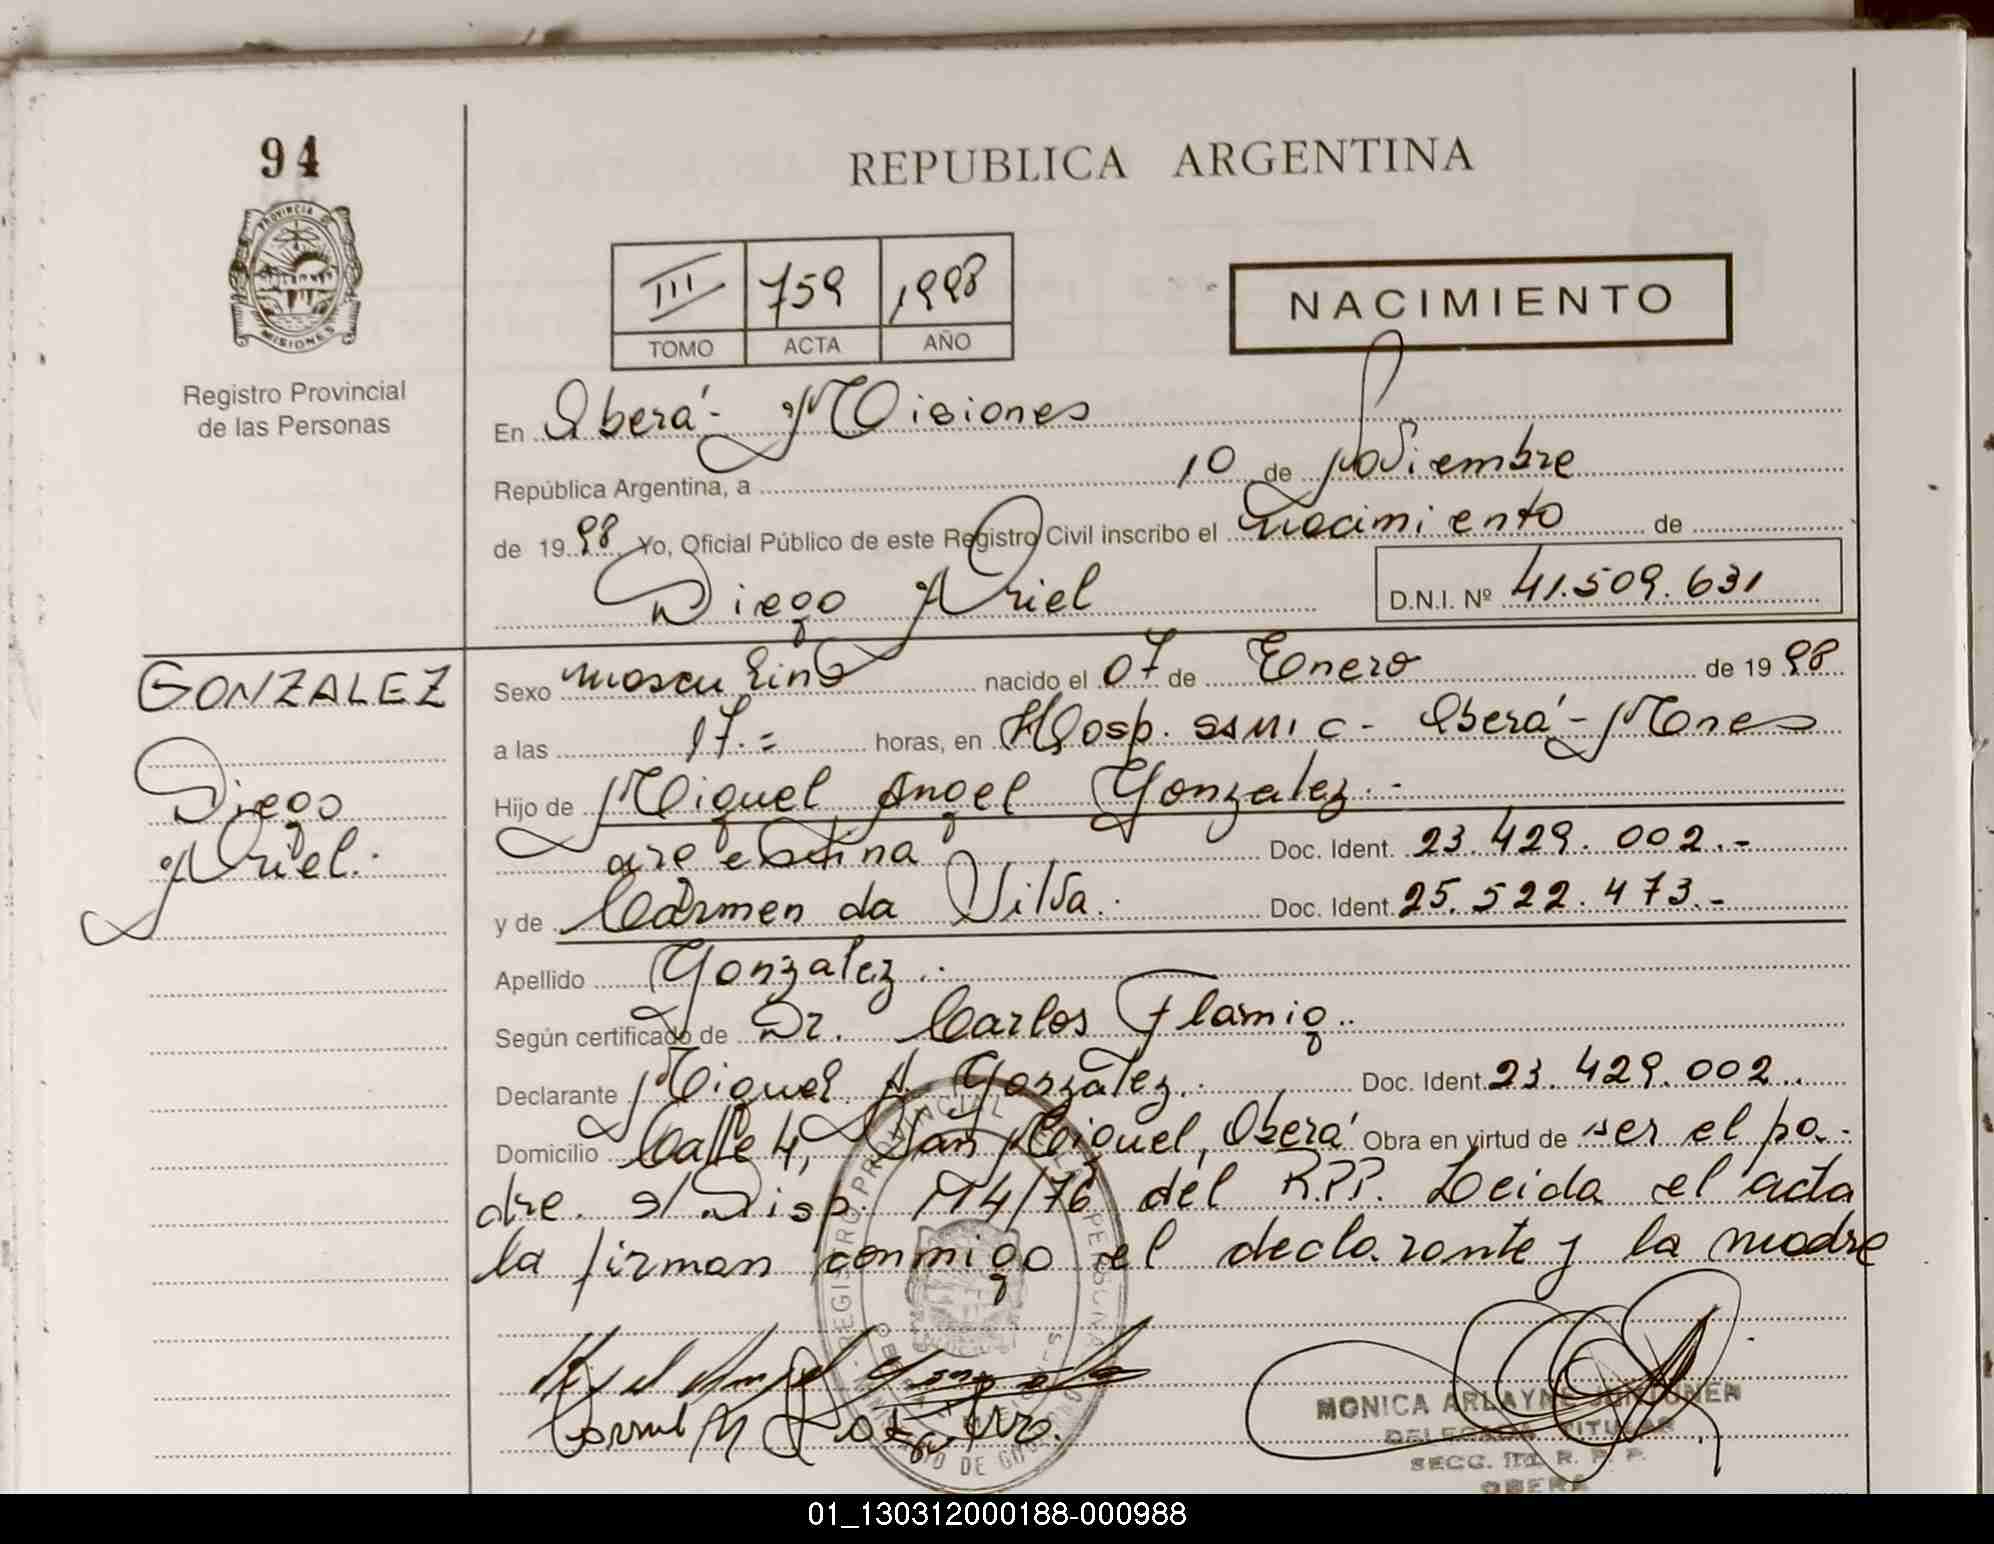 94
REPUBLICA ARGENTINA
PROVINCIA DE
MISIONES
III 759 1998
TOMO ACTA AÑO
NACIMIENTO
Registro Provincial
de las Personas
En Oberá - Misiones
República Argentina, a 10 de Noviembre
de 1998 Yo, Oficial Público de este Registro Civil inscribo el nacimiento de
Diego Ariel D.N.I. Nº 41.509.631
GONZALEZ
Diego
Ariel.
Sexo masculino nacido el 07 de Enero de 1998
a las 17.= horas, en Hosp. SAMIC - Oberá - Mnes
Hijo de Miguel Angel Gonzalez.-
argentina Doc. Ident. 23.429.002.-
y de Carmen da Silva. Doc. Ident. 25.522.473.-
Apellido Gonzalez.
Según certificado de Dr. Carlos Flamig..
Declarante Miguel A. Gonzalez. Doc. Ident. 23.429.002..
Domicilio Calle 4, San Miguel, Oberá Obra en virtud de ser el pa-
dre. s/Disp. 114/76 del R.P.P. Leida el acta
la firman conmigo el declarante y la madre
REGISTRO PROVINCIAL DE LAS PERSONAS
MONICA ARLAYNE
DELEGADA TITULAR
SECC. III R. P. P.
OBERA
01_130312000188-000988